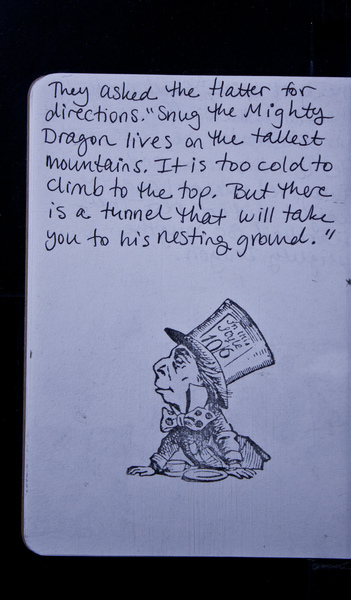 They asked the Hatter for
directions. "Snug the Mighty
Dragon lives on the tallest
mountains. It is too cold to
climb to the top. But there
is a tunnel that will take
you to his nesting ground."
In this
Style
10/6